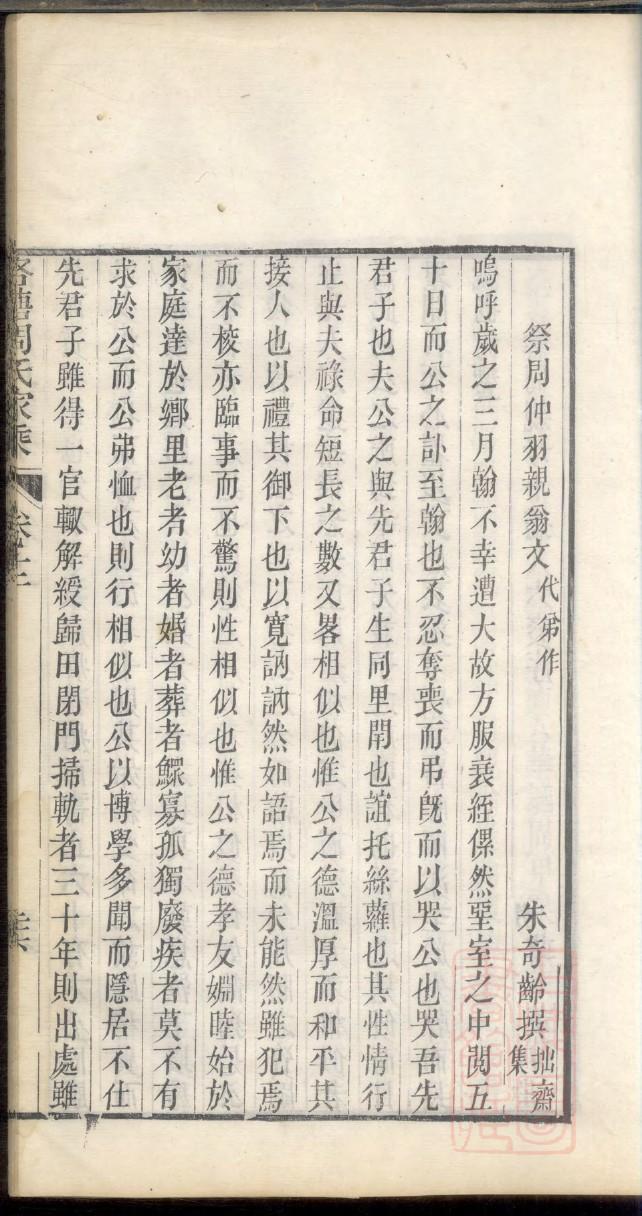 祭周仲羽親翁文 代第作 朱奇齡撰 拙齋集
嗚呼歲之三月翰不幸遭大故方服衰絰傫然堊室之中閱五
十日而公之訃至翰也不忍奪喪而弔旣而以哭公也哭吾先
君子也夫公之與先君子生同里閈也誼托絲蘿也其性情行
止與夫祿命短長之數又畧相似也惟公之德溫厚而和平其
接人也以禮其御下也以寬訥訥然如語焉而未能然雖犯焉
而不校亦臨事而不驚則性相似也惟公之德孝友婣睦始於
家庭達於鄉里老者幼者婚者葬者鰥寡孤獨廢疾者莫不有
求於公而公弗恤也則行相似也公以博學多聞而隱居不仕
先君子雖得一官輙解綬歸田閉門掃軌者三十年則出處雖
洛塘周氏家乘 卷十二 三六